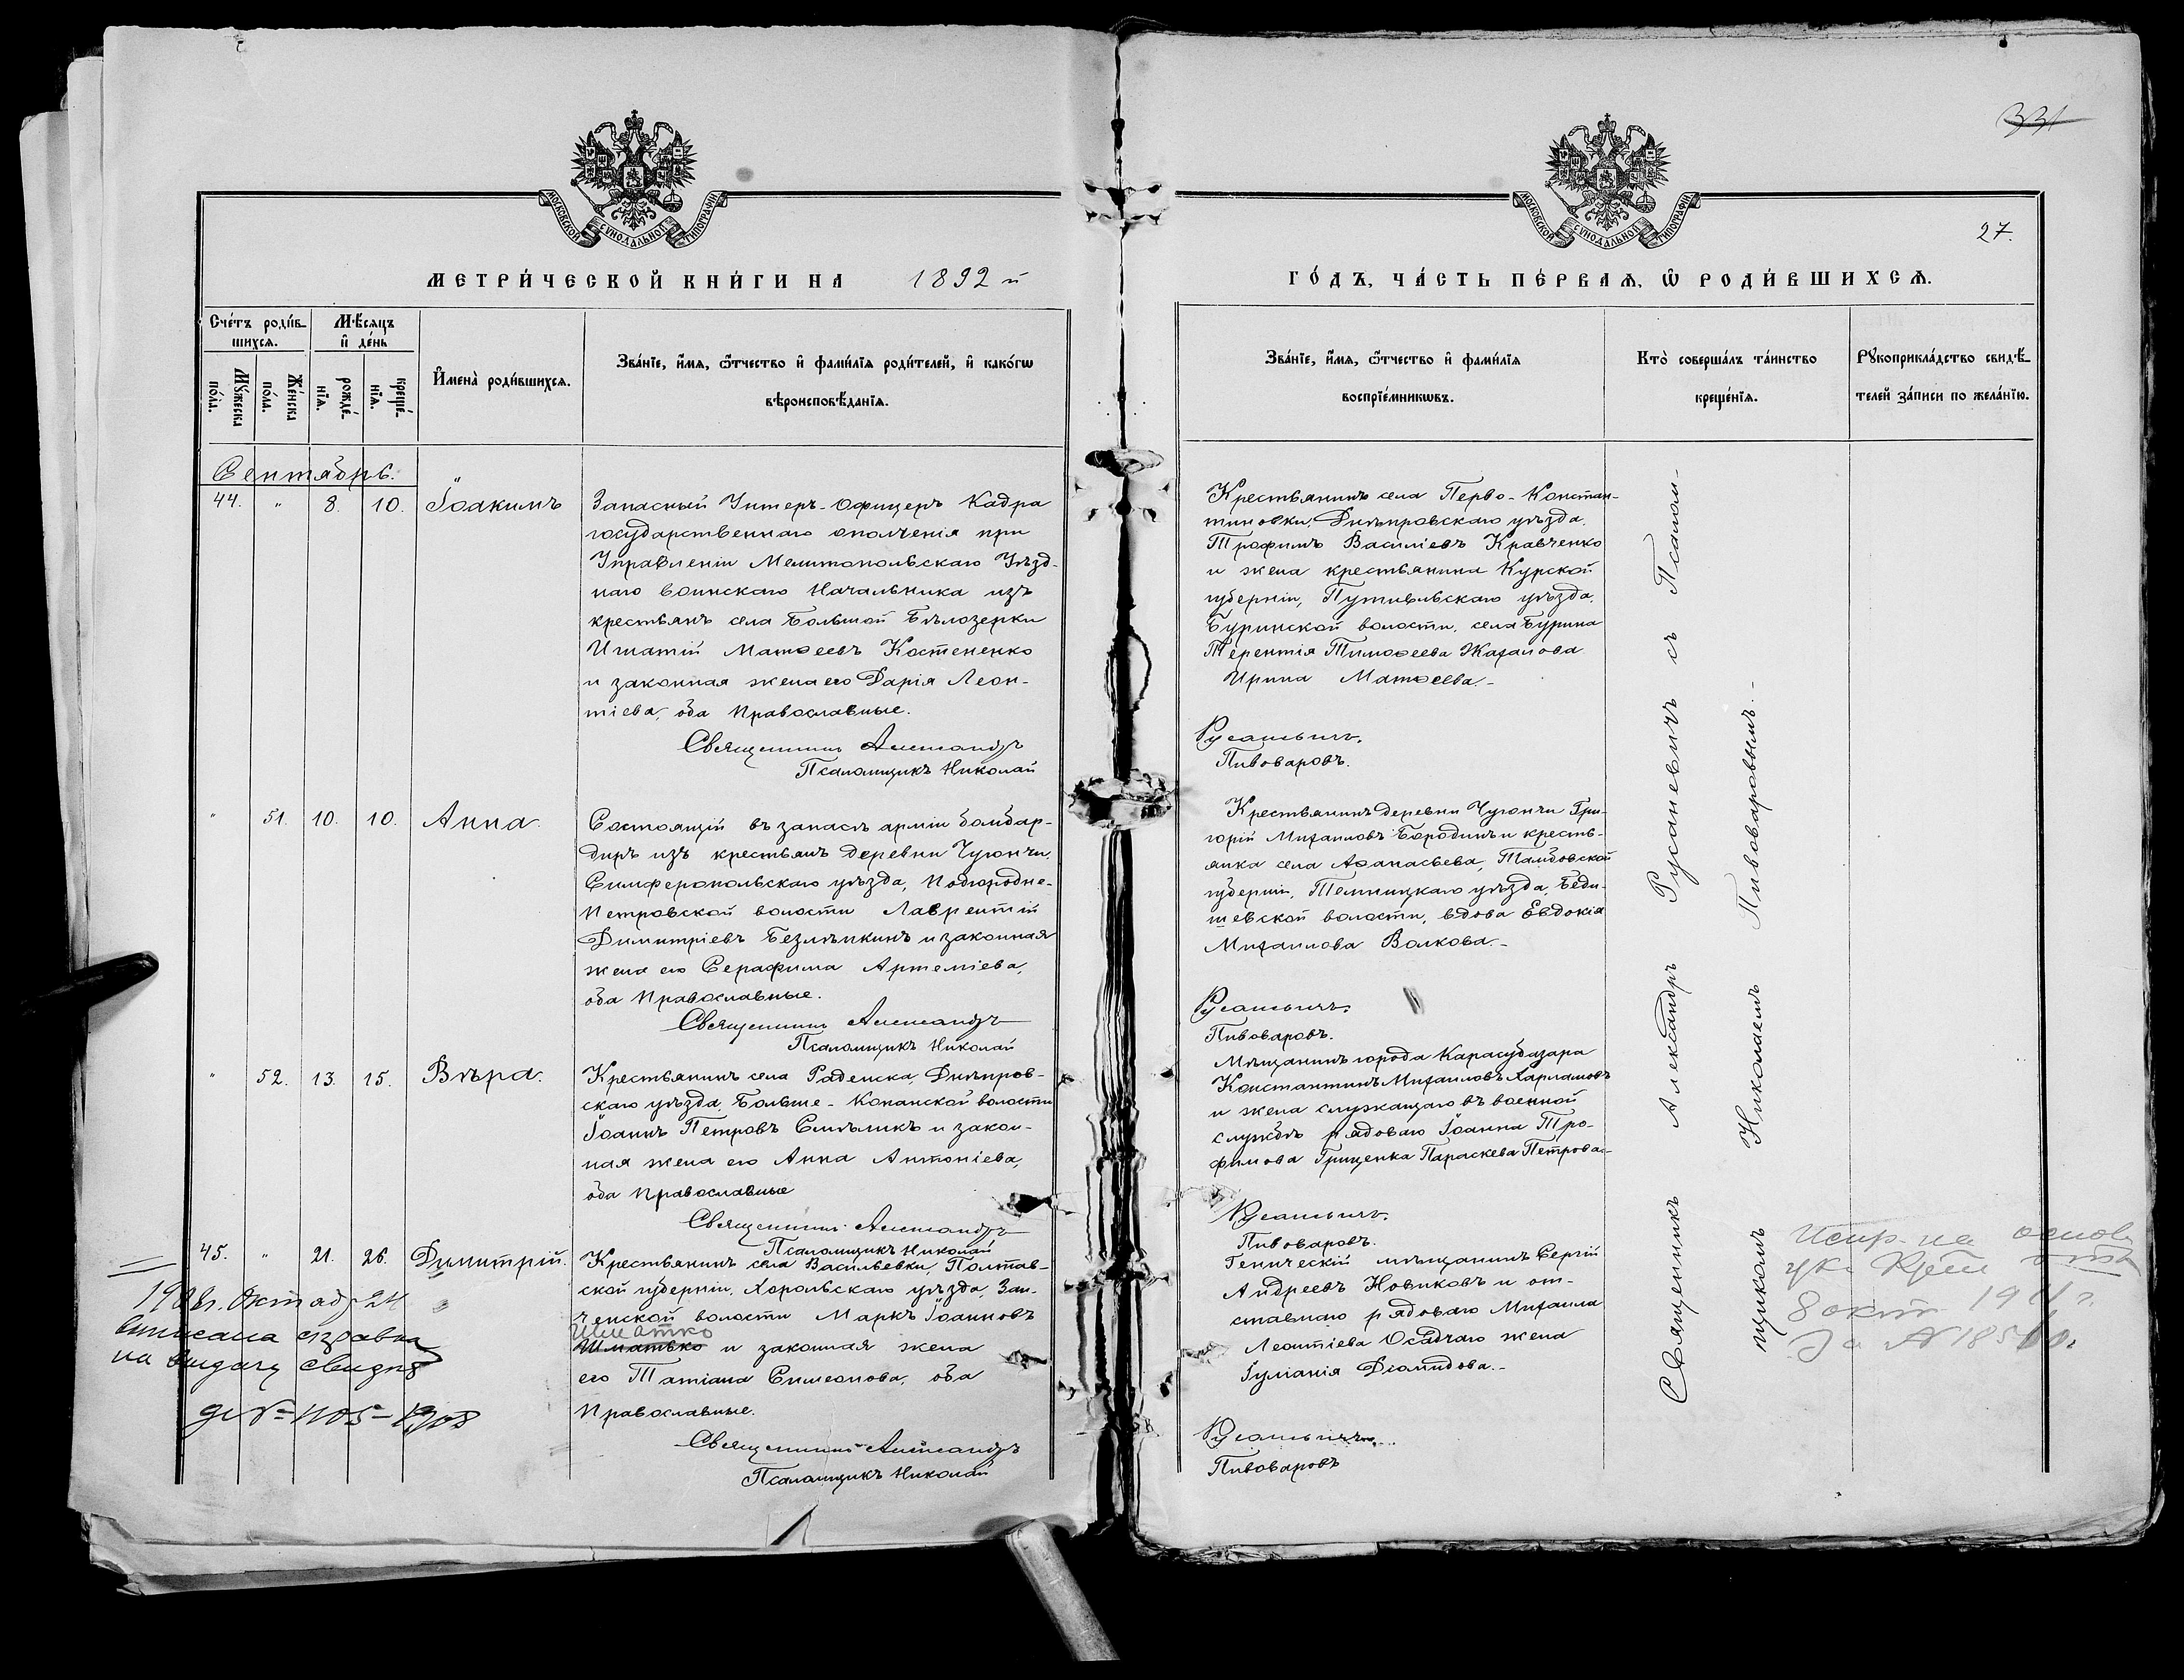 331
МОСКОВСКОЙ СУНОДАЛЬНОЙ ТИПОГРАФІИ
МОСКОВСКОЙ СУНОДАЛЬНОЙ ТИПОГРАФІИ
27.
МЕТРИ́ЧЕСКОЙ КНИ́ГИ НА 1892 й
ГО́ДЪ, ЧА́СТЬ ПЕ́РВАЯ, Ѡ РОДИ́ВШИХСЯ.
Сче́тъ роди́в-
шихся.
Мꙋ́жеска по́ла.
Же́нска по́ла.
Мѣ́сяцъ
и҆ де́нь
рожде́-
нїя.
креще́-
нїя.
И҆мена̀ роди́вшихся.
Зва́нїе, и҆́мя, ѻ҆́тчество и҆ фами́лїя роди́телей, и҆ како́гѡ
вѣроисповѣ́данїя.
Зва́нїе, и҆́мя, ѻ҆́тчество и҆ фами́лїя
воспрїе́мникѡвъ.
Кто̀ соверша́лъ та́инство
креще́нїя.
Рꙋкоприкла́дство свидѣ́-
телей за́писи по жела́нїю.
Сентябрь.
44. " 8. 10. Іоакимъ
Запасный Унтеръ-Офицеръ Кадра
государственнаго ополченія при
Управленіи Мелитопольскаго Уѣзд-
наго воинскаго Начальника изъ
крестьянъ села Большой Бѣлозерки
Игнатій Матѳеевъ Костененко
и законная жена его Дарія Леон-
тіева, оба Православные.
Священникъ Александръ
Псаломщикъ Николай
Крестьянинъ села Перво-Констан-
тиновки, Днѣпровскаго уѣзда.
Трофимъ Василіевъ Кравченко
и жена крестьянина Курской
губерніи, Путивльскаго уѣзда.
Буринской волости, села Бурина
Терентія Тимоѳеева Жатанова
Ирина Матѳеева.-
Русаневичъ.
Пивоваровъ.
" 51. 10. 10. Анна.
Состоящій въ запасѣ арміи бомбар-
диръ изъ крестьянъ деревни Чугончи,
Симферопольскаго уѣзда, Подгородне-
Петровской волости Лаврентій
Димитріевъ Безлѣпкинъ и законная
жена его Серафима Артеміева,
оба Православные.
Священникъ Александръ
Псаломщикъ Николай
Крестьянинъ деревни Чугончи Гри-
горій Михаиловъ Бородинъ и кресть-
янка села Аѳанасьева, Тамбовской
губерніи, Темницкаго уѣзда, Беди-
шевской волости, вдова Евдокія
Михаилова Волкова.-
Русаневичъ.
Пивоваровъ.
" 52. 13. 15. Вѣра.
Крестьянинъ села Раденска, Днѣпров-
скаго уѣзда, Больше-Копанской волости
Іоаннъ Петровъ Смѣликъ и закон-
ная жена его Анна Антоніева,
оба Православные
Священникъ Александръ
Псаломщикъ Николай
Мѣщанинъ города Карасубазара
Константинъ Михаиловъ Харламовъ
и жена служащаго въ военной
службѣ рядоваго Іоанна Тро-
фимова Грищенка Параскева Петрова-
Русаневичъ.
Пивоваровъ.
45. " 21. 26. Димитрій.
Крестьянинъ села Васильевки, Полтав-
ской губерніи, Хорольскаго уѣзда, Заи-
ченской волости Маркъ Іоанновъ
Шматко
Шматько и законная жена
его Татіана Симеонова, оба
Православные.
Священникъ Александръ
Псаломщикъ Николай
Геническій мѣщанинъ Сергій
Андреевъ Новиковъ и от-
ставнаго рядоваго Михаила
Леонтіева Осадчаго жена
Іуліанія Діомидова.-
Русаневичъ.
Пивоваровъ
Священникъ Александръ Русаневичъ съ Псалом-
щикомъ Николаемъ Пивоваровымъ.-
1908г. Октяб 24
выписана справка
на выдачу свидѣт
№ 1105-1908
Испр. на основ
8 окт 191
За №